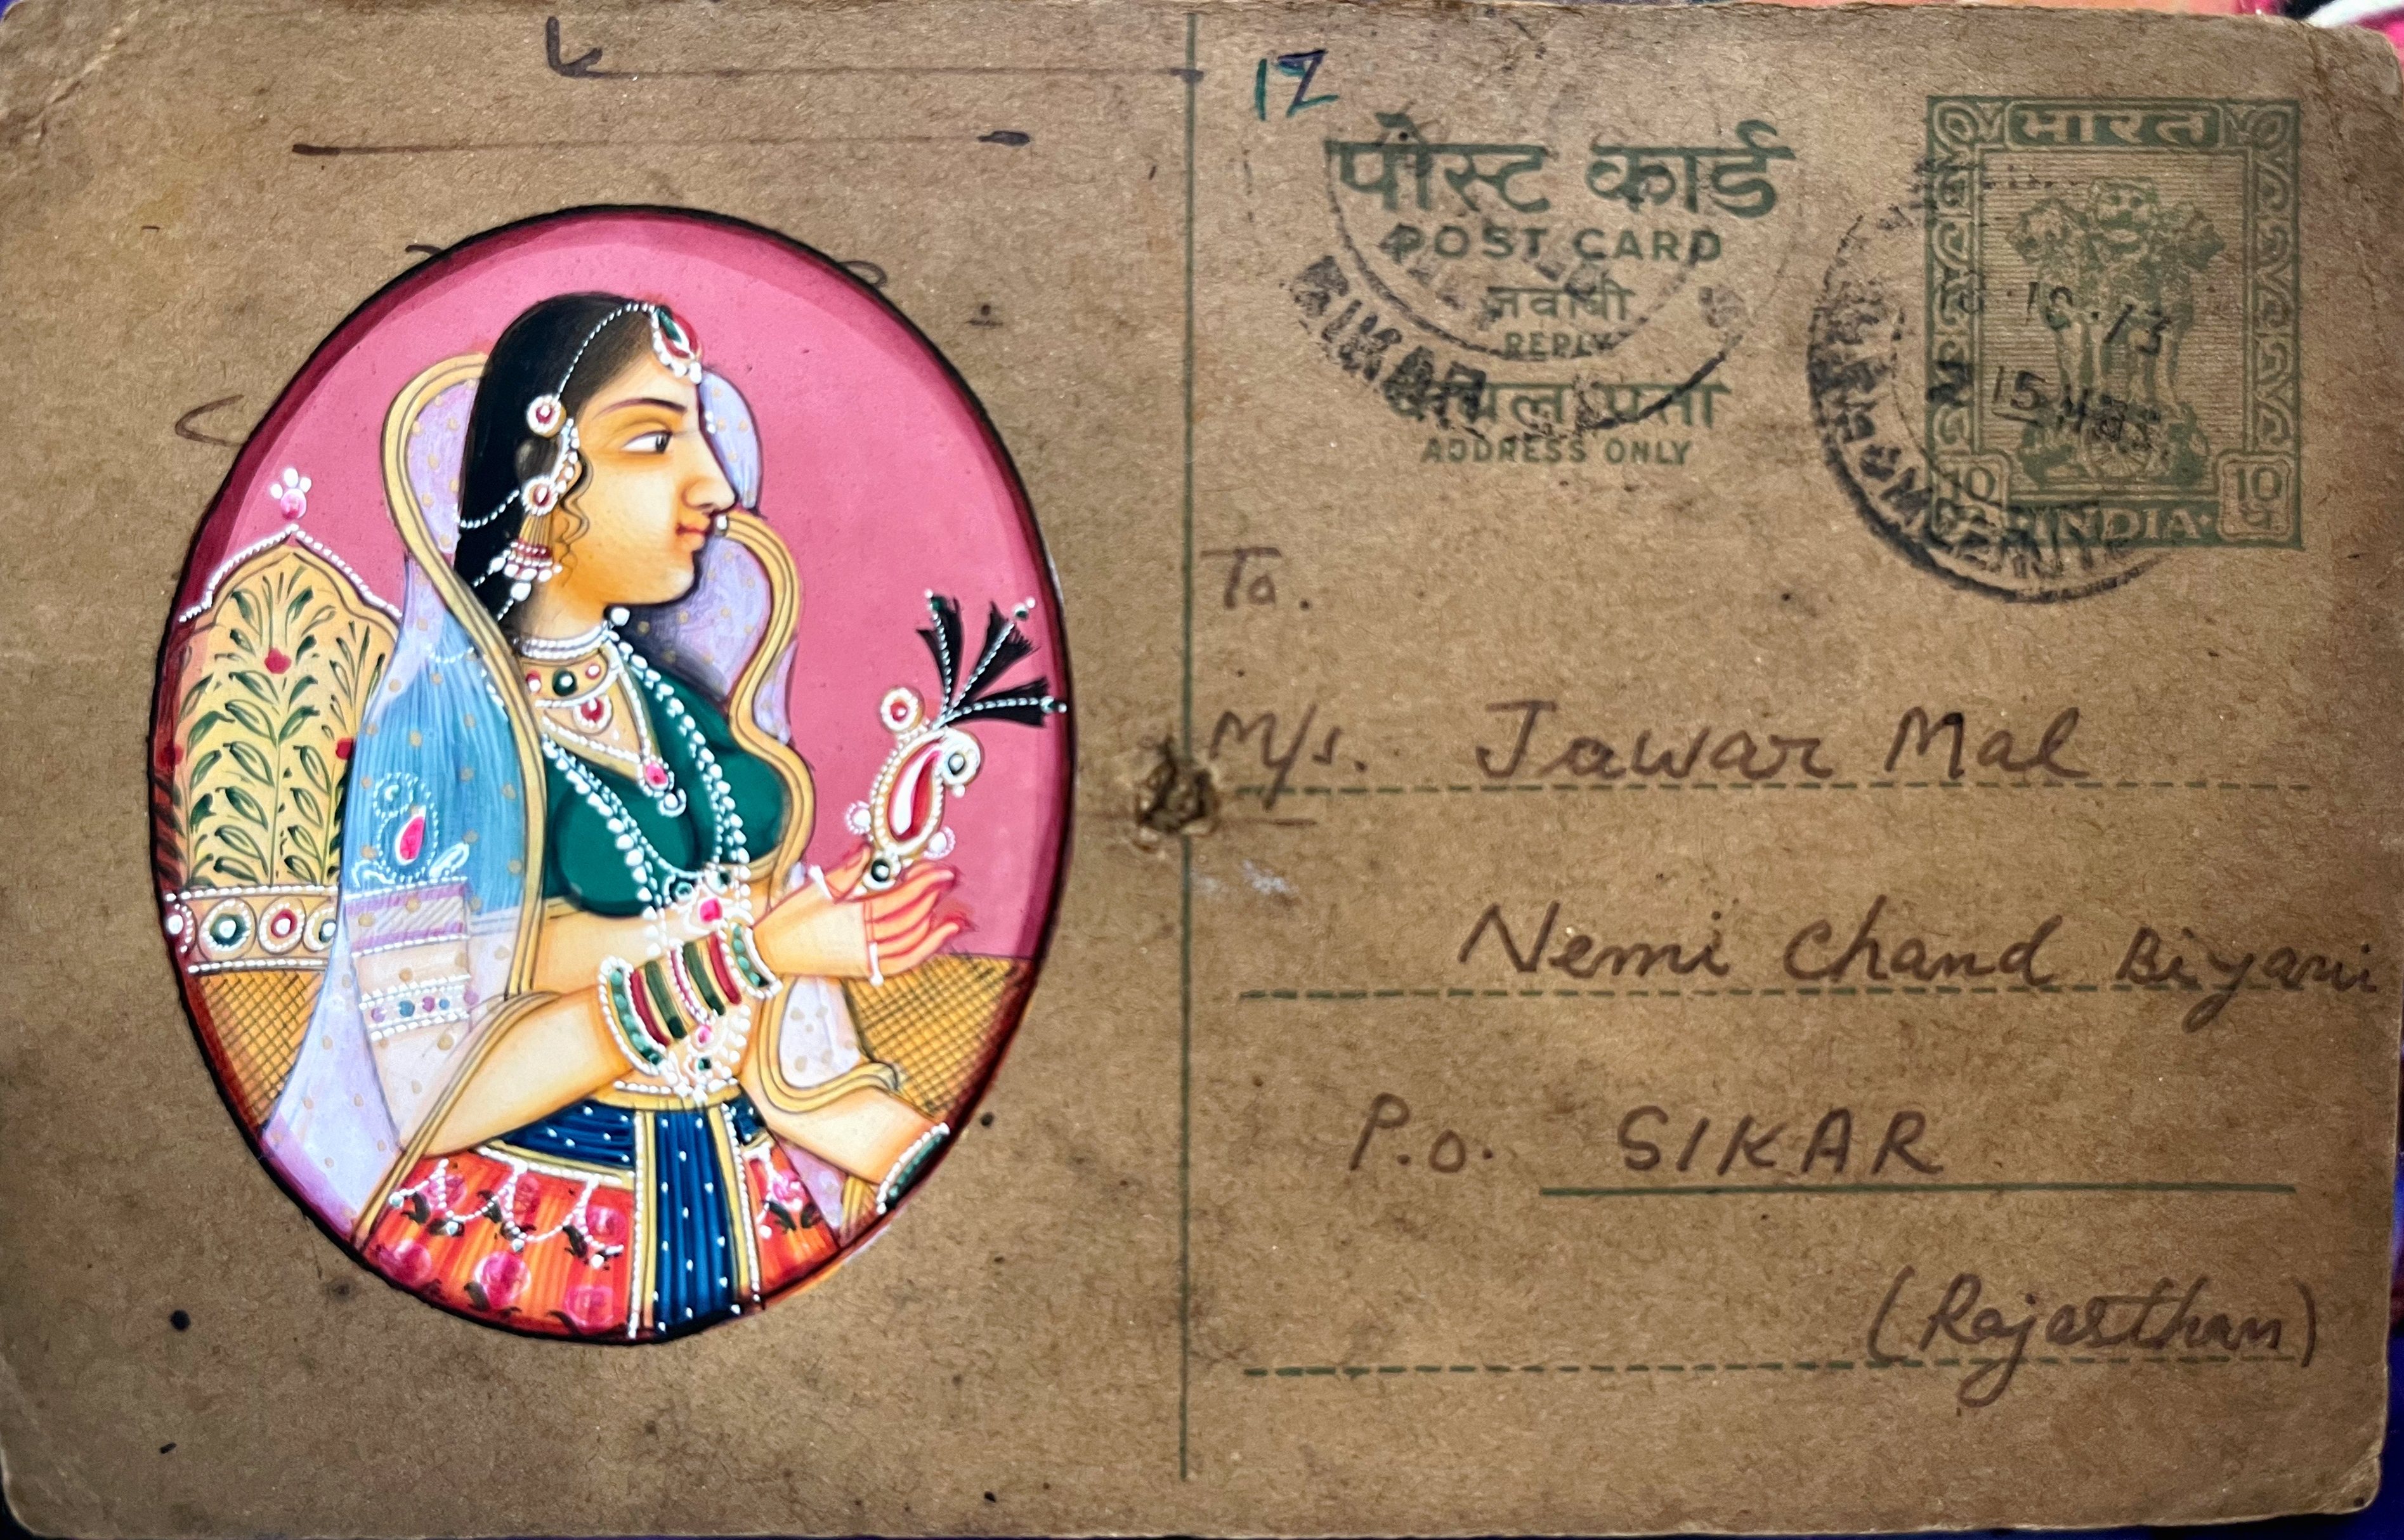 12
पोस्ट कार्ड
POST CARD
जवाबी
REPLY
केवल पता
ADDRESS ONLY
SIKAR
भारत
10.73
15 HRS.
10 10
INDIA
To.
M/s. Jawar Mal
Nemi Chand Biyani
P.O. SIKAR
(Rajasthan)